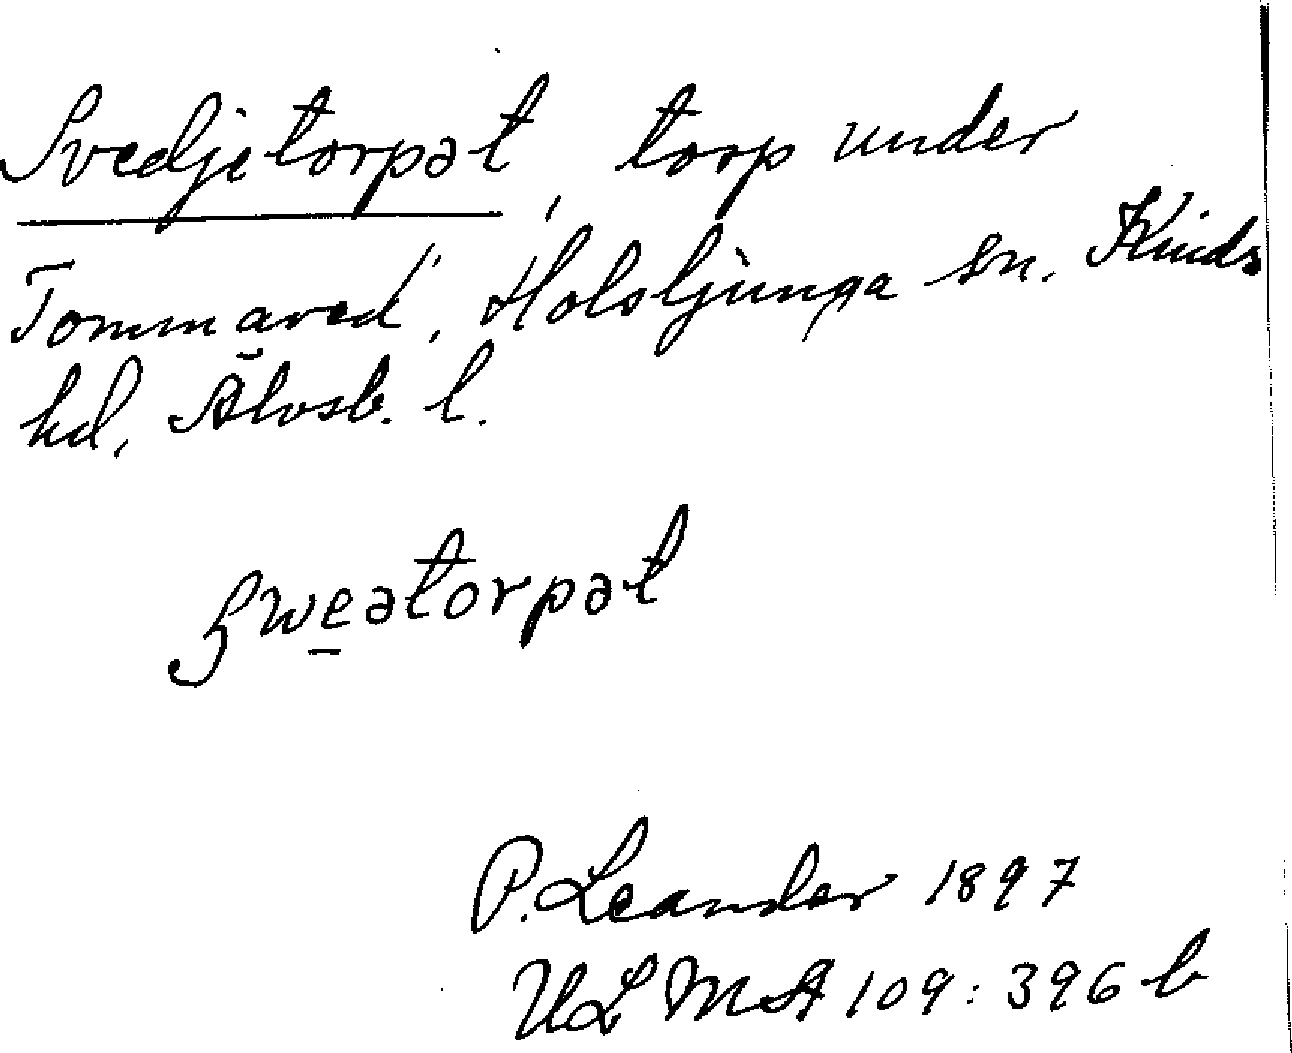 Svedjetorpət, torp under
Tommared, Holsljunga sn. Kinds
hd. Älvsb. l.
Sweətorpət
P. Leander 1897
ULMA 109:396 b